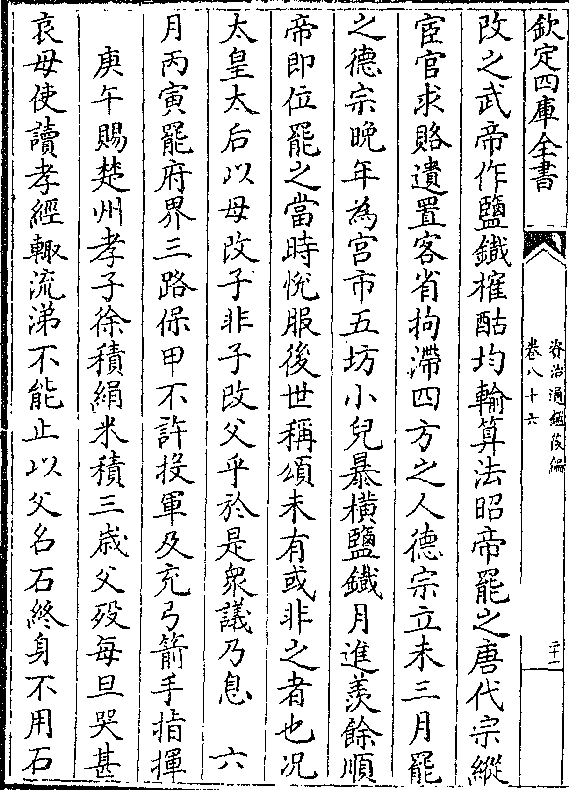 欽定四庫全書
資治通鑑後編
卷八十六
二十一
改之武帝作鹽鐵榷酤均輸算法昭帝罷之唐代宗縱
宦官求賂遺置客省拘滯四方之人德宗立未三月罷
之德宗晚年為宫市五坊小兒暴橫鹽鐵月進羨餘順
帝即位罷之當時悅服後世稱頌未有或非之者也况
太皇太后以母改子非子改父乎於是衆議乃息　六
月丙寅罷府界三路保甲不許投軍及充弓箭手指揮
庚午賜楚州孝子徐積絹米積三歳父殁每旦哭甚
哀母使讀孝經輙流涕不能止以父名石終身不用石